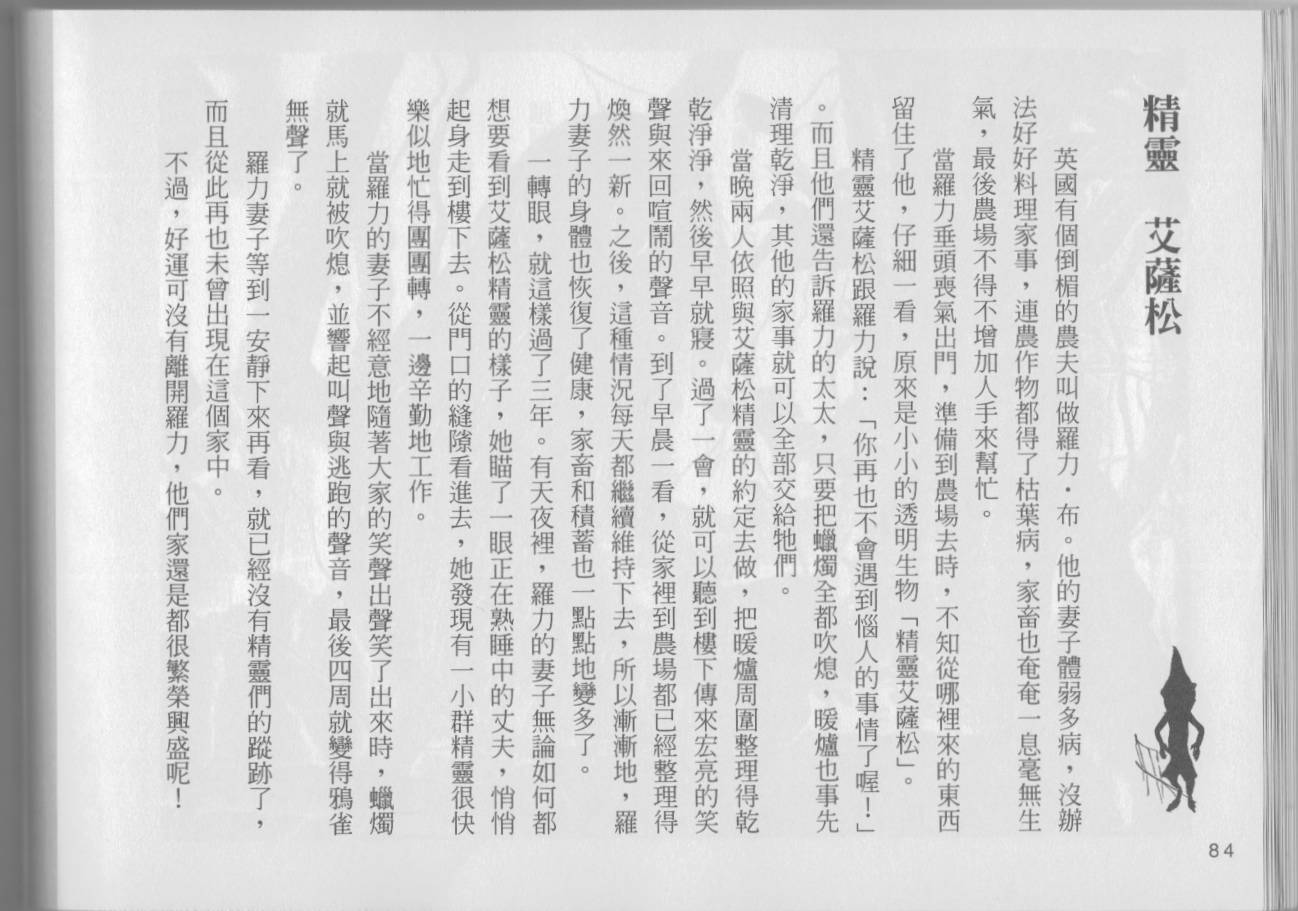 精靈　艾薩松
英國有個倒楣的農夫叫做羅力・布。他的妻子體弱多病，沒辦
法好好料理家事，連農作物都得了枯葉病，家畜也奄奄一息毫無生
氣，最後農場不得不增加人手來幫忙。
當羅力垂頭喪氣出門，準備到農場去時，不知從哪裡來的東西
留住了他，仔細一看，原來是小小的透明生物「精靈艾薩松」。
精靈艾薩松跟羅力說：「你再也不會遇到惱人的事情了喔！」
。而且他們還告訴羅力的太太，只要把蠟燭全都吹熄，暖爐也事先
清理乾淨，其他的家事就可以全部交給牠們。
當晚兩人依照與艾薩松精靈的約定去做，把暖爐周圍整理得乾
乾淨淨，然後早早就寢。過了一會，就可以聽到樓下傳來宏亮的笑
聲與來回喧鬧的聲音。到了早晨一看，從家裡到農場都已經整理得
煥然一新。之後，這種情況每天都繼續維持下去，所以漸漸地，羅
力妻子的身體也恢復了健康，家畜和積蓄也一點點地變多了。
一轉眼，就這樣過了三年。有天夜裡，羅力的妻子無論如何都
想要看到艾薩松精靈的樣子，她瞄了一眼正在熟睡中的丈夫，悄悄
起身走到樓下去。從門口的縫隙看進去，她發現有一小群精靈很快
樂似地忙得團團轉，一邊辛勤地工作。
當羅力的妻子不經意地隨著大家的笑聲出聲笑了出來時，蠟燭
就馬上就被吹熄，並響起叫聲與逃跑的聲音，最後四周就變得鴉雀
無聲了。
羅力妻子等到一安靜下來再看，就已經沒有精靈們的蹤跡了，
而且從此再也未曾出現在這個家中。
不過，好運可沒有離開羅力，他們家還是都很繁榮興盛呢！
84